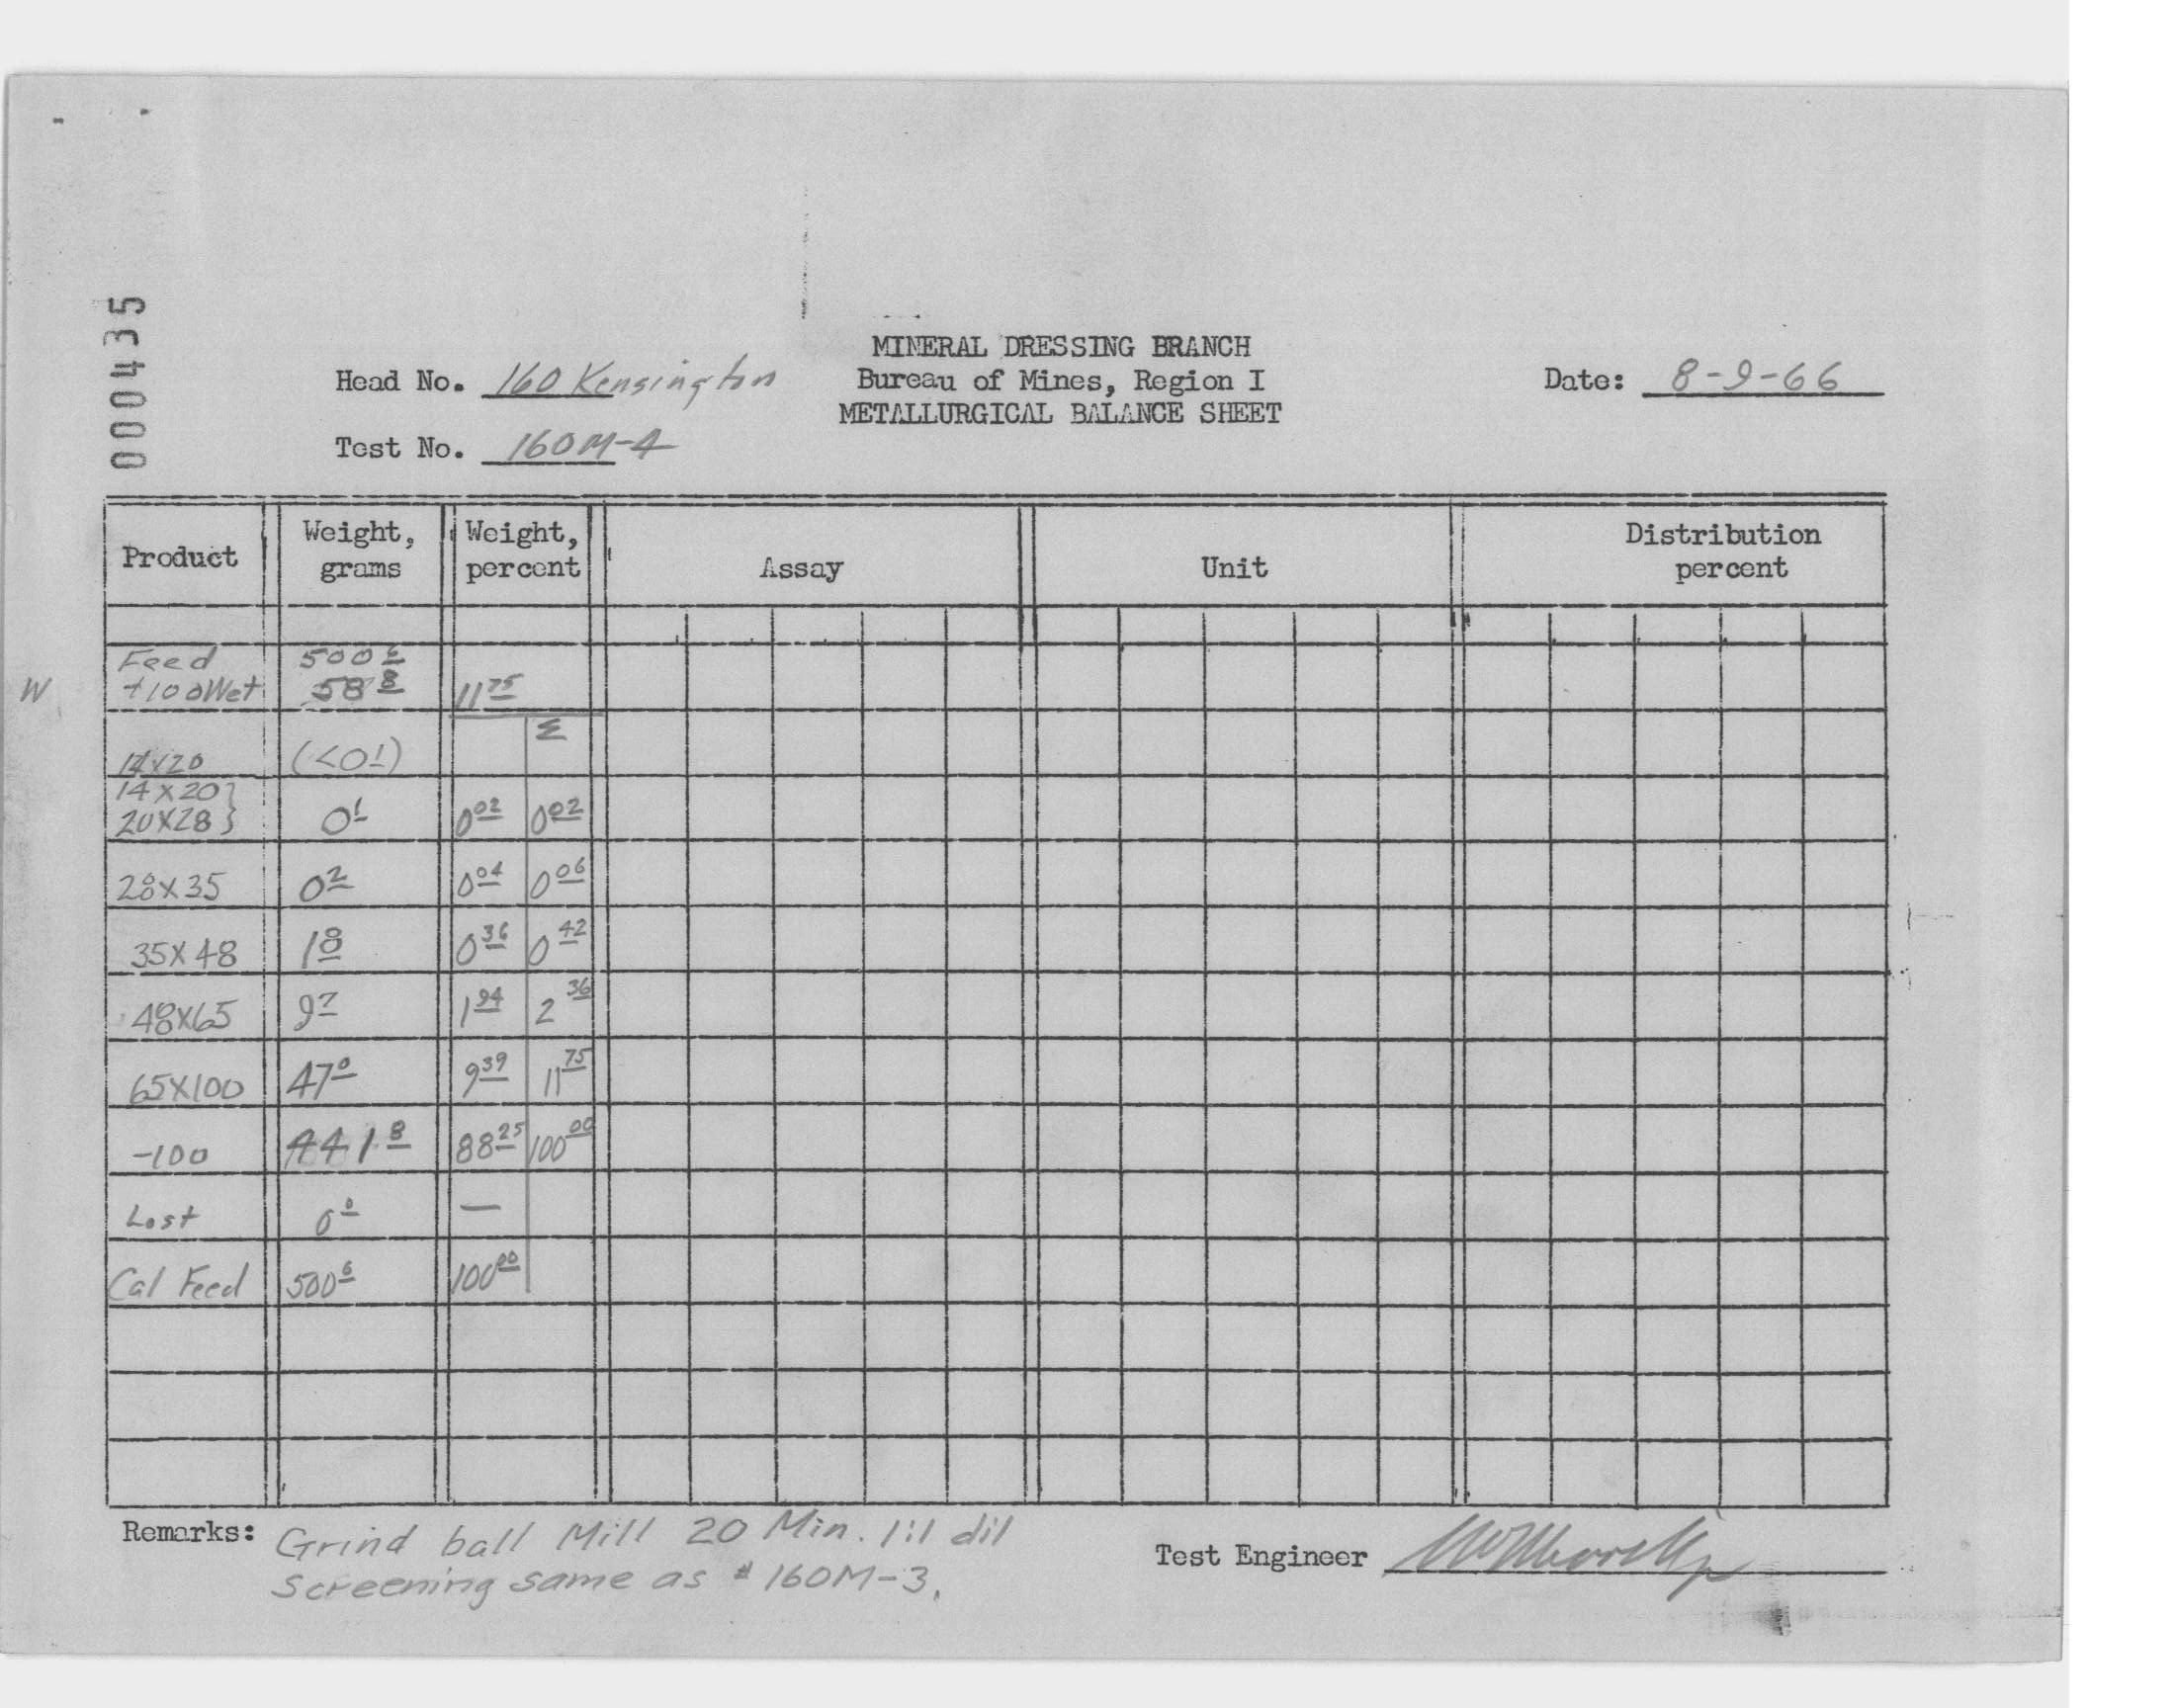 000435
MINERAL DRESSING BRANCH
Head No. 160 Kensington Bureau of Mines, Region I Date: 8-9-66
METALLURGICAL BALANCE SHEET
Test No. 160M-4
Product Weight, grams Weight, percent Assay Unit Distribution percent
Feed 500 6
W +100 Wet 58 8 11 75
Σ
14x20 (<0 1)
14x20}
20x28} 0 1 0 02 0 02
28x35 0 2 0 04 0 06
35x48 1 8 0 36 0 42
48x65 9 7 1 94 2 36
65x100 47 0 9 39 11 75
-100 441 8 88 25 100 00
Lost 0 0 —
Cal Feed 500 6 100 00
Remarks: Grind ball Mill 20 Min. 1:1 dil
Screening same as # 160M-3.
Test Engineer